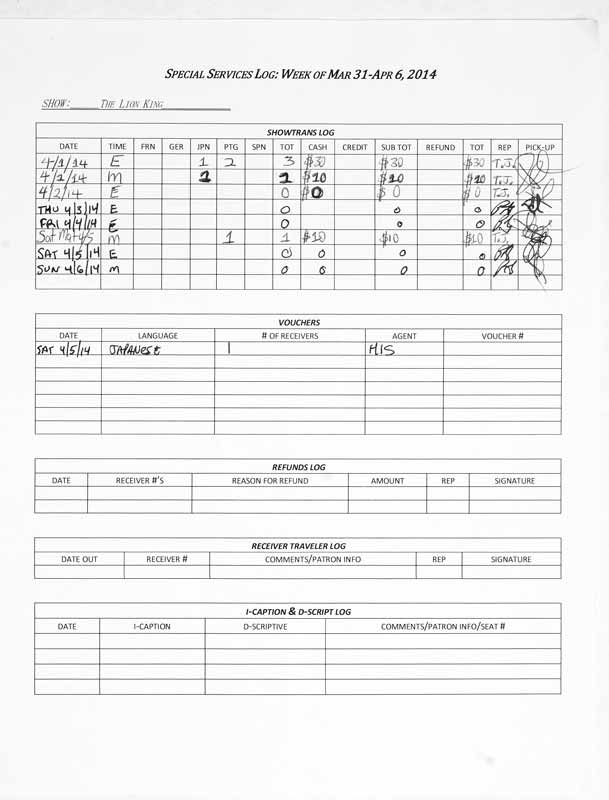 SPECIAL SERVICES LOG: WEEK OF MAR 31-APR 6, 2014
SHOW: THE LION KING
SHOWTRANS LOG
DATE TIME FRN GER JPN PTG SPN TOT CASH CREDIT SUB TOT REFUND TOT REP PICK-UP
4/1/14 E 1 2 3 $30 $30 $30 T.J.
4/2/14 M 1 1 $10 $10 $10 T.J.
4/2/14 E 0 $0 $0 $0 T.J.
THU 4/3/14 E 0 0 0
FRI 4/4/14 E 0 0 0
Sat Mat 4/5 M 1 1 $10 $10 $10 T.J.
SAT 4/5/14 E 0 0 0 0
SUN 4/6/14 M 0 0 0 0
VOUCHERS
DATE LANGUAGE # OF RECEIVERS AGENT VOUCHER #
SAT 4/5/14 JAPANESE 1 HIS
REFUNDS LOG
DATE RECEIVER #'S REASON FOR REFUND AMOUNT REP SIGNATURE
RECEIVER TRAVELER LOG
DATE OUT RECEIVER # COMMENTS/PATRON INFO REP SIGNATURE
I-CAPTION & D-SCRIPT LOG
DATE I-CAPTION D-SCRIPTIVE COMMENTS/PATRON INFO/SEAT #